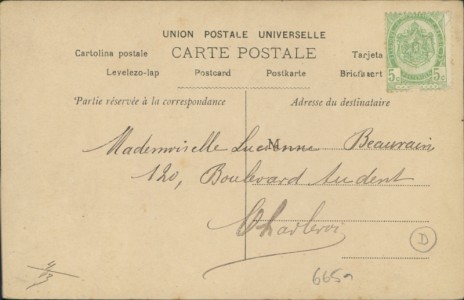 UNION POSTALE UNIVERSELLE
Cartolina postale CARTE POSTALE Tarjeta
Levelezo-lap Postcard Postkarte Brietkaart
5c 5c
Partie réservée à la correspondance Adresse du destinataire
Mademoiselle Lucienne M Beaurain
120, Boulevard Audent
Charleroi
D
665a